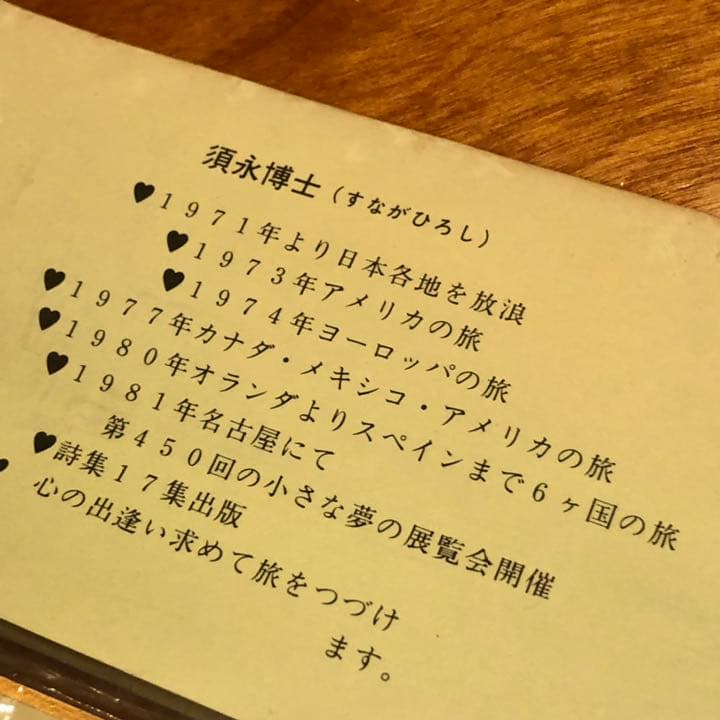 須永博士(すながひろし)
♥1971年より日本各地を放浪
♥1973年アメリカの旅
♥1974年ヨーロッパの旅
♥1977年カナダ・メキシコ・アメリカの旅
♥1980年オランダよりスペインまで6ヶ国の旅
♥1981年名古屋にて
第450回の小さな夢の展覧会開催
♥詩集17集出版
♥心の出逢い求めて旅をつづけ
ます。